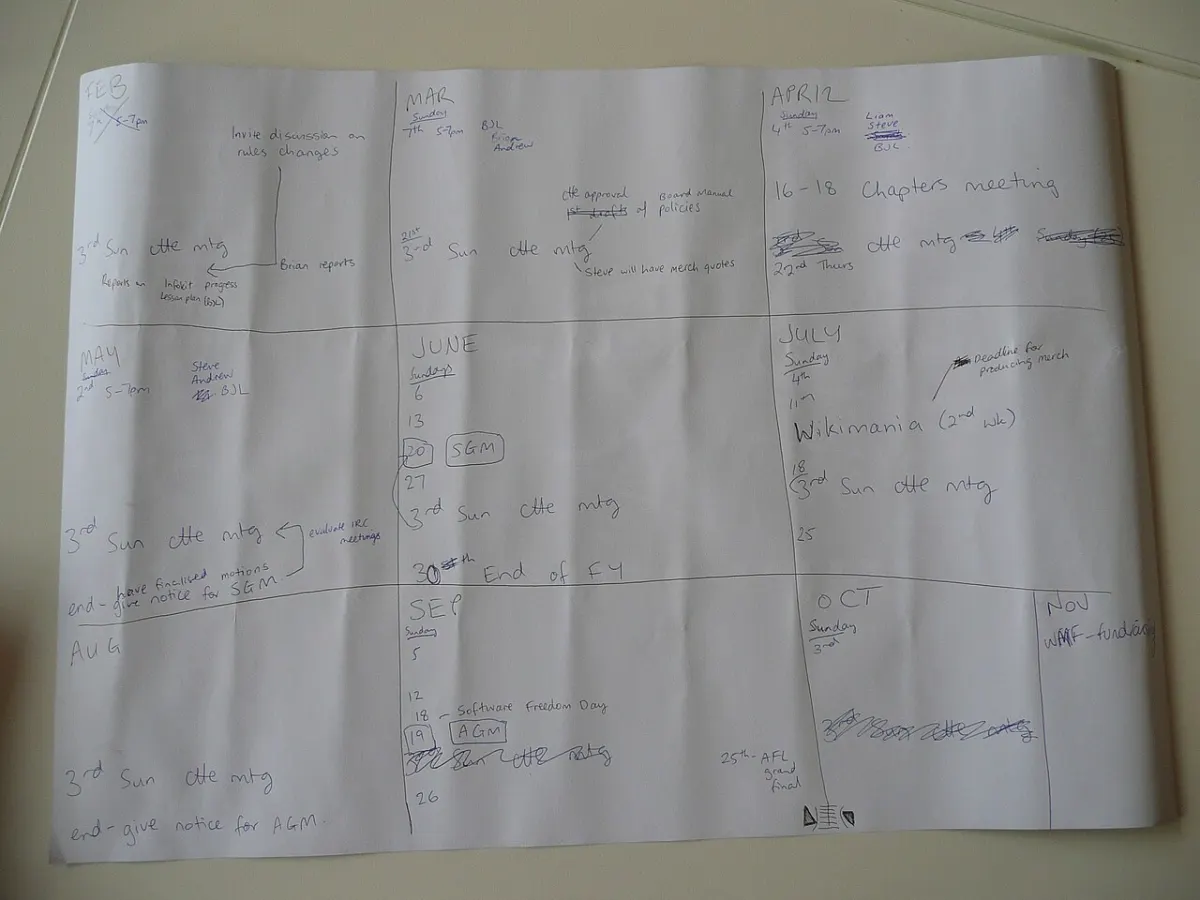 FEB
5-7pm
Invite discussion on
rules changes
3rd Sun ctte mtg
Brian reports
Reports on Infokit progress
Lesson plan (BJL)
MAR
Sunday
7th 5-7pm BJL
Brian
Andrew
ctte approval
1st drafts of Board Manual
policies
21st
3rd Sun ctte mtg
Steve will have merch quotes
APRIL
Sunday
4th 5-7pm
Liam
Steve
BJL
16-18 Chapters meeting
ctte mtg
22nd Thurs
MAY
Sunday
2nd 5-7pm
Steve
Andrew
BJL
3rd Sun ctte mtg
evaluate IRC
meetings
have finalised motions
end - give notice for SGM
JUNE
Sundays
6
13
20 SGM
27
3rd Sun ctte mtg
30th End of FY
JULY
Sunday
4th
11th
Deadline for
producing merch
Wikimania (2nd wk)
18
3rd Sun ctte mtg
25
AUG
3rd Sun ctte mtg
end - give notice for AGM.
SEP
Sunday
5
12
18 - Software Freedom Day
19 AGM
3rd Sun ctte mtg
26
25th - AFL
grand
final
OCT
Sunday
3rd
3rd Sun ctte mtg
NOV
WMF - fundraising